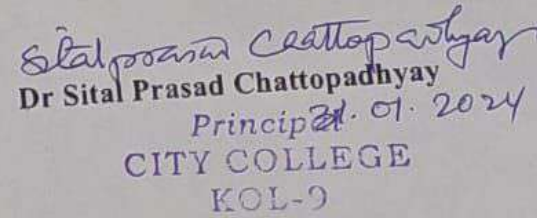 Sitalprasad Chattopadhyay
Dr Sital Prasad Chattopadhyay
Principal
31.01.2024
CITY COLLEGE
KOL-9